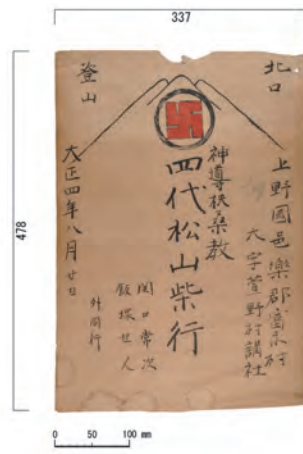 337
478
北口
登山
上野國邑樂郡富永村
大字萱野村講社
神道扶桑教
四代松山柴行
関口常次
飯塚廿人
外同行
大正四年八月廿日
0 50 100 mm